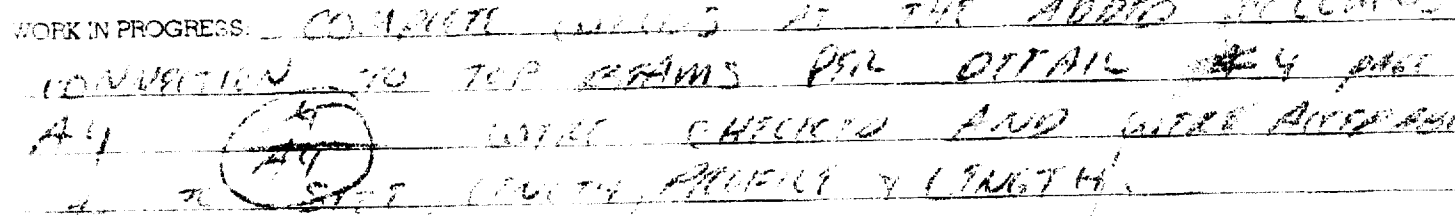 WORK IN PROGRESS: COMPLETE WELDS AT THE ADDED
CONNECTION TO TOP BEAMS PER DETAIL # 4 PAGE
A4 4 A4 WERE CHECKED AND WERE ACCEPTABLE
TO SIZE, LENGTH, PROFILE & LENGTH.